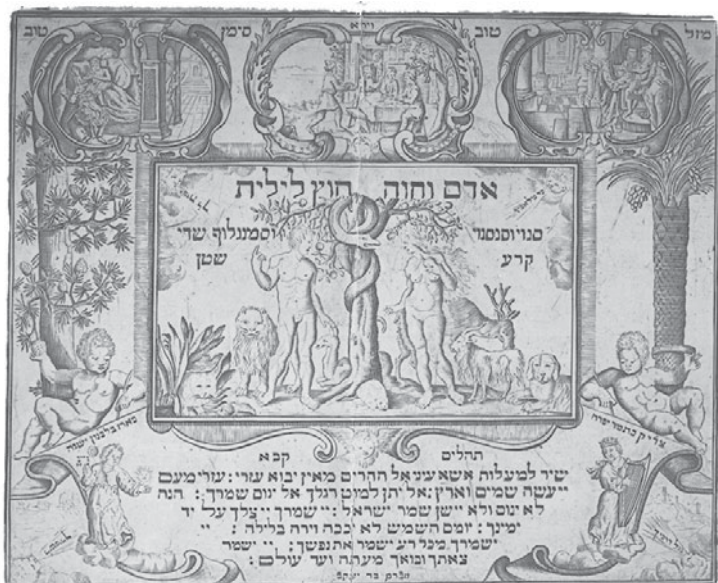 מזל טוב וירא סימן טוב
אדם וחוה חוץ לילית
סנוי וסנסנוי וסמנגלוף שדי
קרע שטן
צדיק כתמר יפרח
כארז בלבנון ישגה
תהלים קכא
שיר למעלות אשא עיני אל ההרים מאין יבוא עזרי : עזרי מעם
יי עשה שמים וארץ : אל יתן למוט רגלך אל ינום שמרך : הנה
לא ינום ולא יישן שמר ישראל : יי שמרך יי צלך על יד
ימינך : יומם השמש לא יככה וירח בלילה : יי
ישמרך מכל רע ישמר את נפשך : יי ישמר
צאתך ובואך מעתה ועד עולם :
אברם בר יעקב